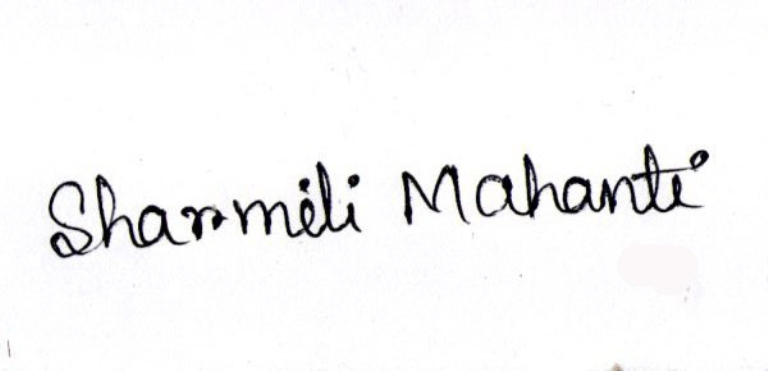 Sharmili Mahanti